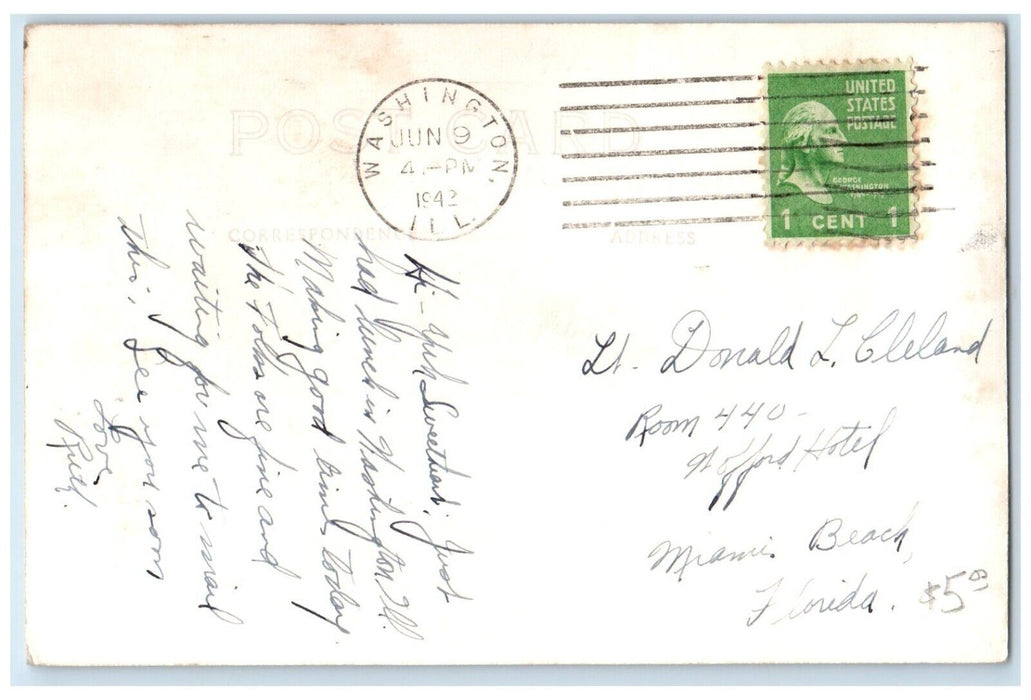 POST CARD
WASHINGTON,
JUN 9
4 - PM
1942
ILL.
UNITED
STATES
POSTAGE
GEORGE
WASHINGTON
1 CENT 1
CORRESPONDENCE
ADDRESS
Hi - Sweetheart, Just
had lunch in Washington Ill.
Making good time today.
The folks are fine and
waiting for me to mail
this. See you soon
Love
Ruth.
Lt. Donald L. Cleland
Room 440 -
Wofford Hotel
Miami Beach,
Florida.
$5.00